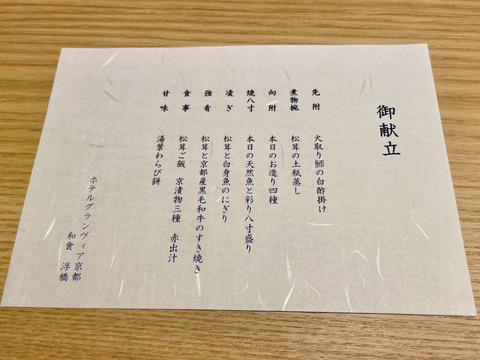 御献立
先附 火取り鰤の白酢掛け
煮物椀 松茸の土瓶蒸し
向附 本日のお造り四種
焼八寸 本日の天然魚と彩り八寸盛り
凌ぎ 松茸と白身魚のにぎり
強肴 松茸と京都産黒毛和牛のすき焼き
食事 松茸ご飯 京漬物三種 赤出汁
甘味 湯葉わらび餅
ホテルグランヴィア京都
和食 浮橋